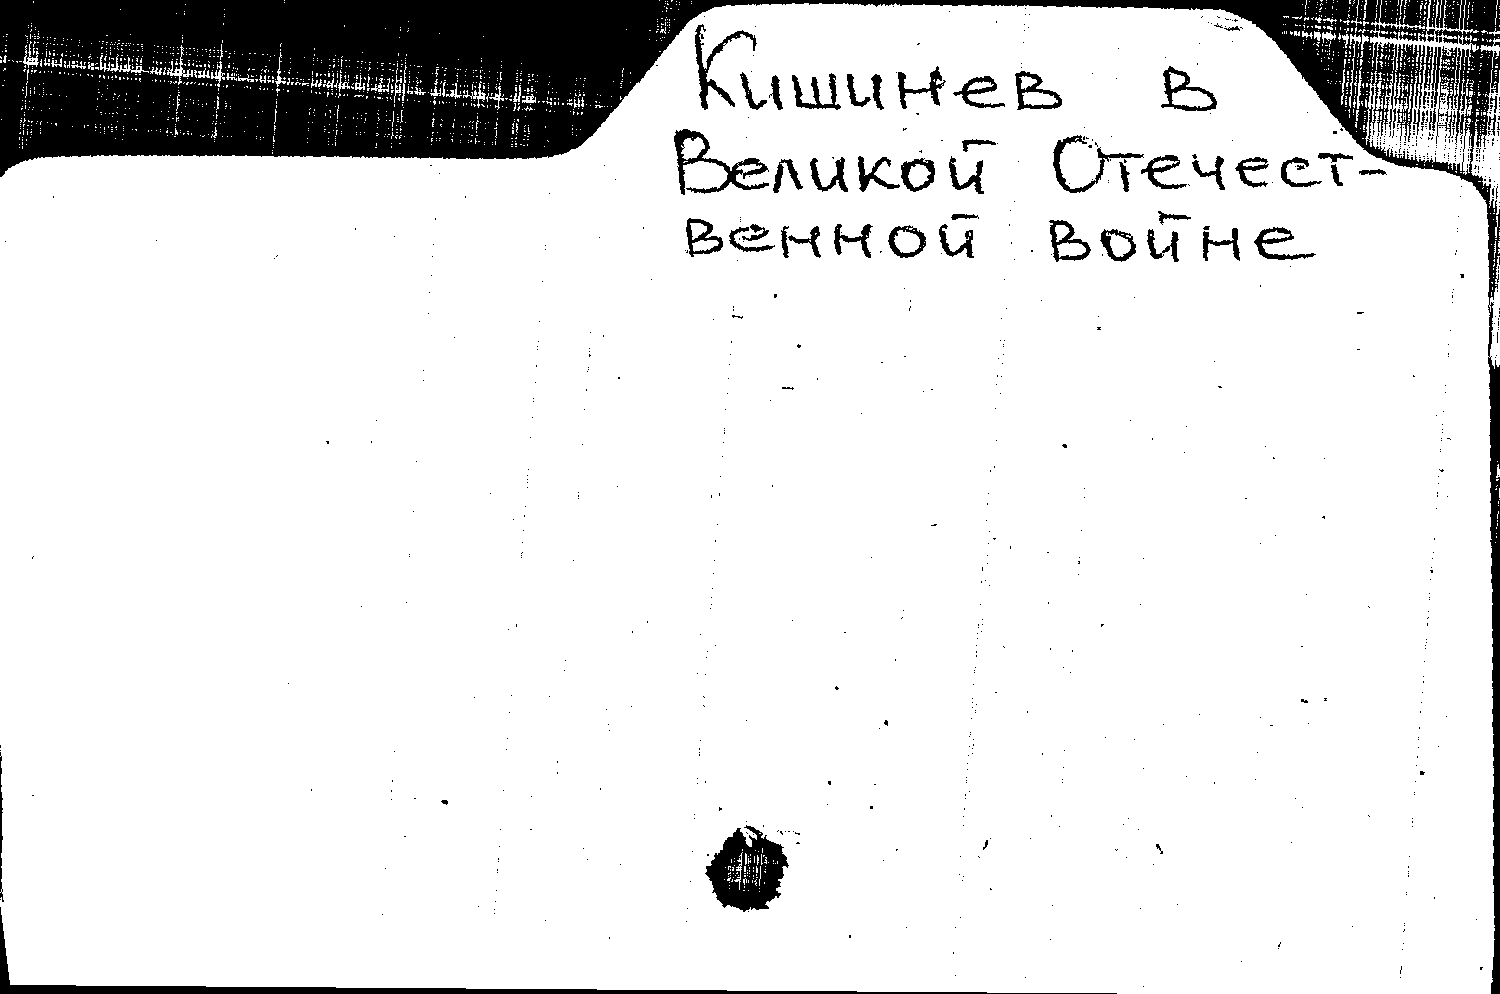 Кишинев в
Великой Отечест-
венной войне